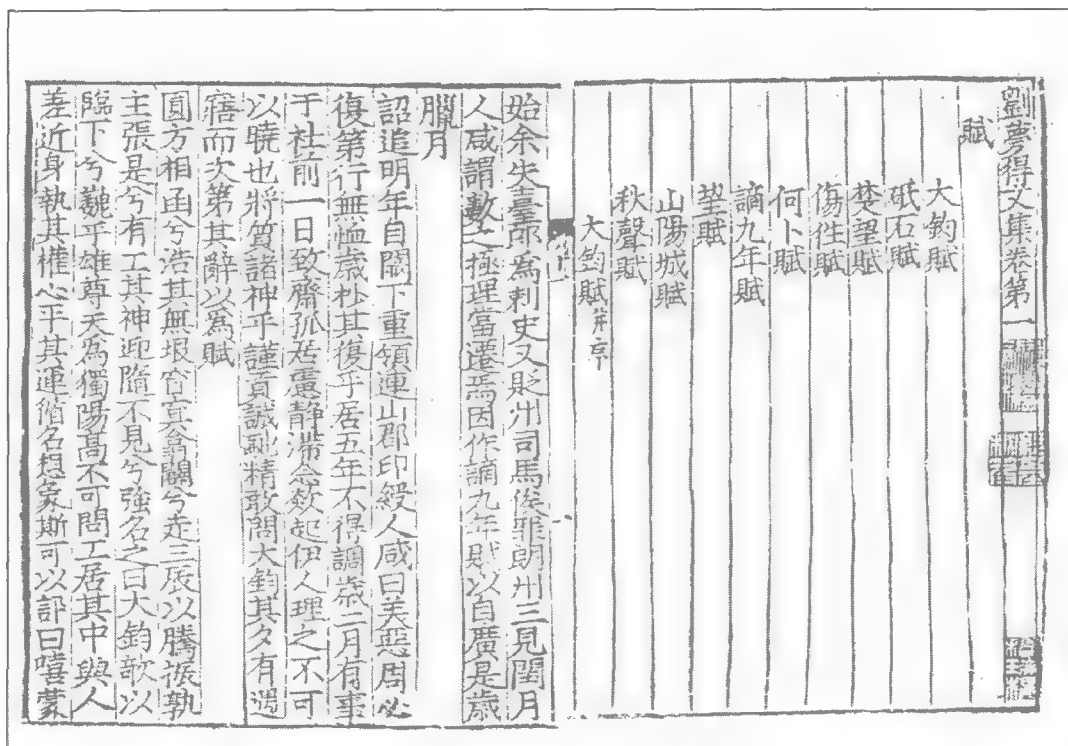 劉夢得文集卷第一
賦
大鈞賦
砥石賦
楚望賦
傷往賦
何卜賦
謫九年賦
望賦
山陽城賦
秋聲賦
大鈞賦并序
始余失臺郎為刺史又貶州司馬俟罪朗州三見閏月
人咸謂數之極理當遷焉因作謫九年賦以自廣是歲
臘月
詔追明年自闕下重領連山郡印綬人咸曰美惡周必
復第行無恤歲杪其復乎居五年不得調歲二月有事
于社前一日致齋孤居慮静滯念欻起伊人理之不可
以曉也將質諸神乎謹貢誠馳精敢問大鈞其夕有遇
寤而次第其辭以為賦
圓方相函兮浩其無垠窅冥翕闢兮走三辰以騰振孰
主張是兮有工其神迎隨不見兮強名之曰大鈞歆以
臨下兮巍乎雄尊天為獨陽高不可問工居其中與人
差近身執其權心平其運循名想象斯可以訊曰嘻蒙